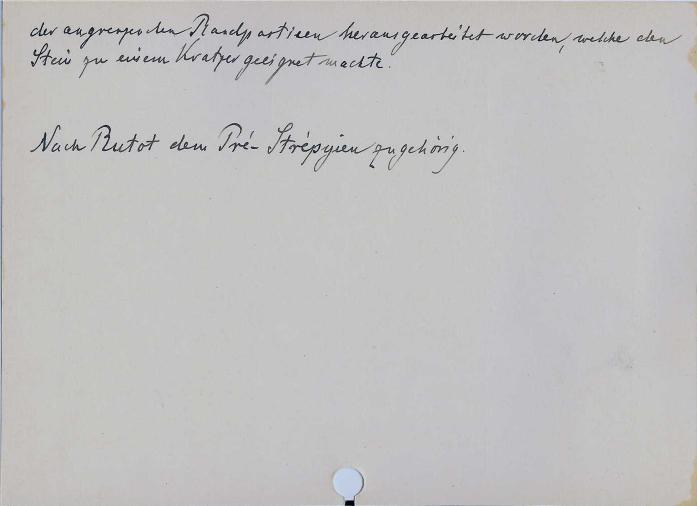 der angrenzenden Randpartieen herausgearbeitet worden, welche den
Stein zu einem Kratzer geeignet machte.
Nach Rutot dem Pré-Strépyien zugehörig.